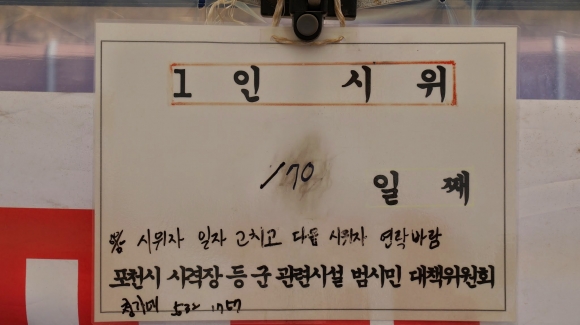 1 인 시 위
170 일 째
시위자 일자 고치고 다음 시위자 연락바람
포천시 사격장 등 군 관련시설 범시민 대책위원회